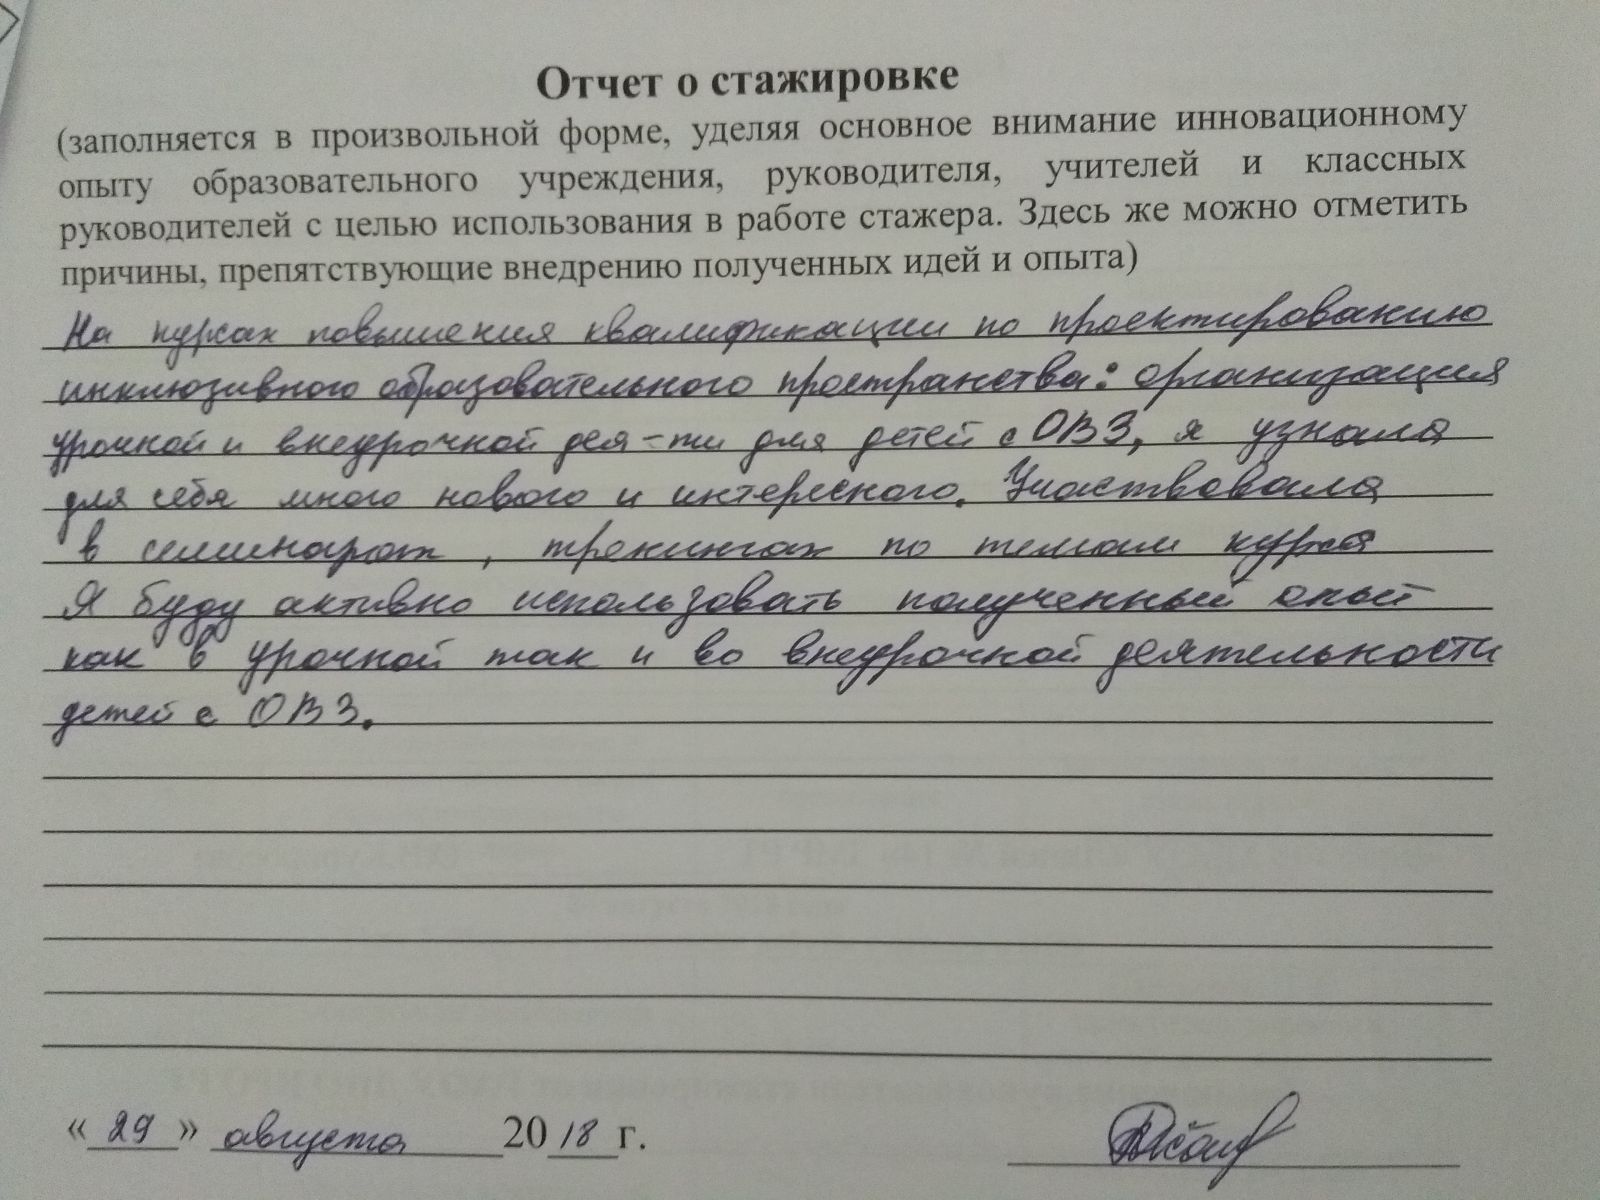 Отчет о стажировке
(заполняется в произвольной форме, уделяя основное внимание инновационному
опыту образовательного учреждения, руководителя, учителей и классных
руководителей с целью использования в работе стажера. Здесь же можно отметить
причины, препятствующие внедрению полученных идей и опыта)
На курсах повышения квалификации по проектированию
инклюзивного образовательного пространства: организация
урочной и внеурочной дея-ти для детей с ОВЗ, я узнала
для себя много нового и интересного. Участвовала
в семинарах, тренингах по темам курса
Я буду активно использовать полученный опыт
как в урочной так и во внеурочной деятельности
детей с ОВЗ.
«29» августа 2018 г.